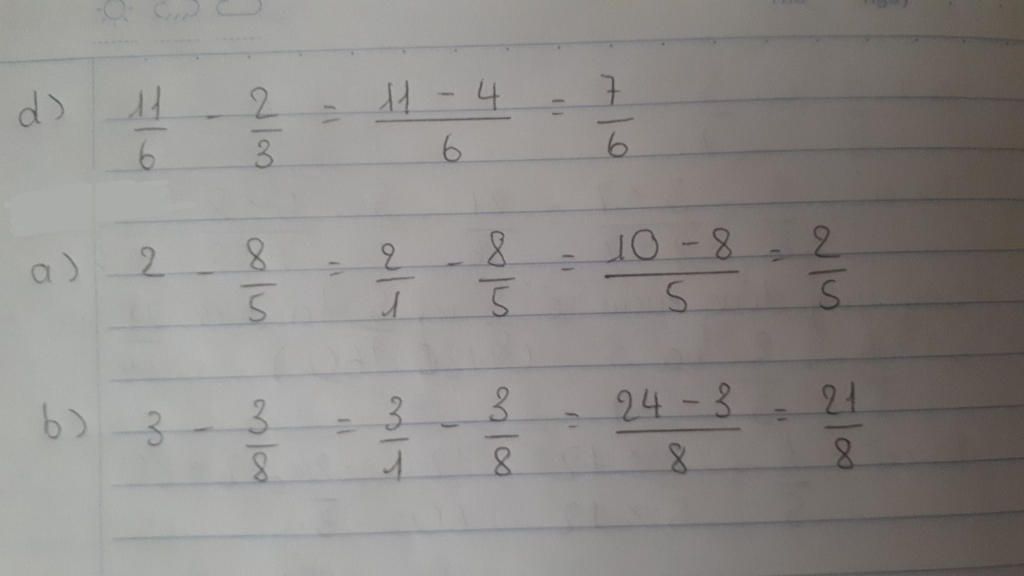 d) 11/6 - 2/3 = (11 - 4)/6 = 7/6
a) 2 - 8/5 = 2/1 - 8/5 = (10 - 8)/5 = 2/5
b) 3 - 3/8 = 3/1 - 3/8 = (24 - 3)/8 = 21/8